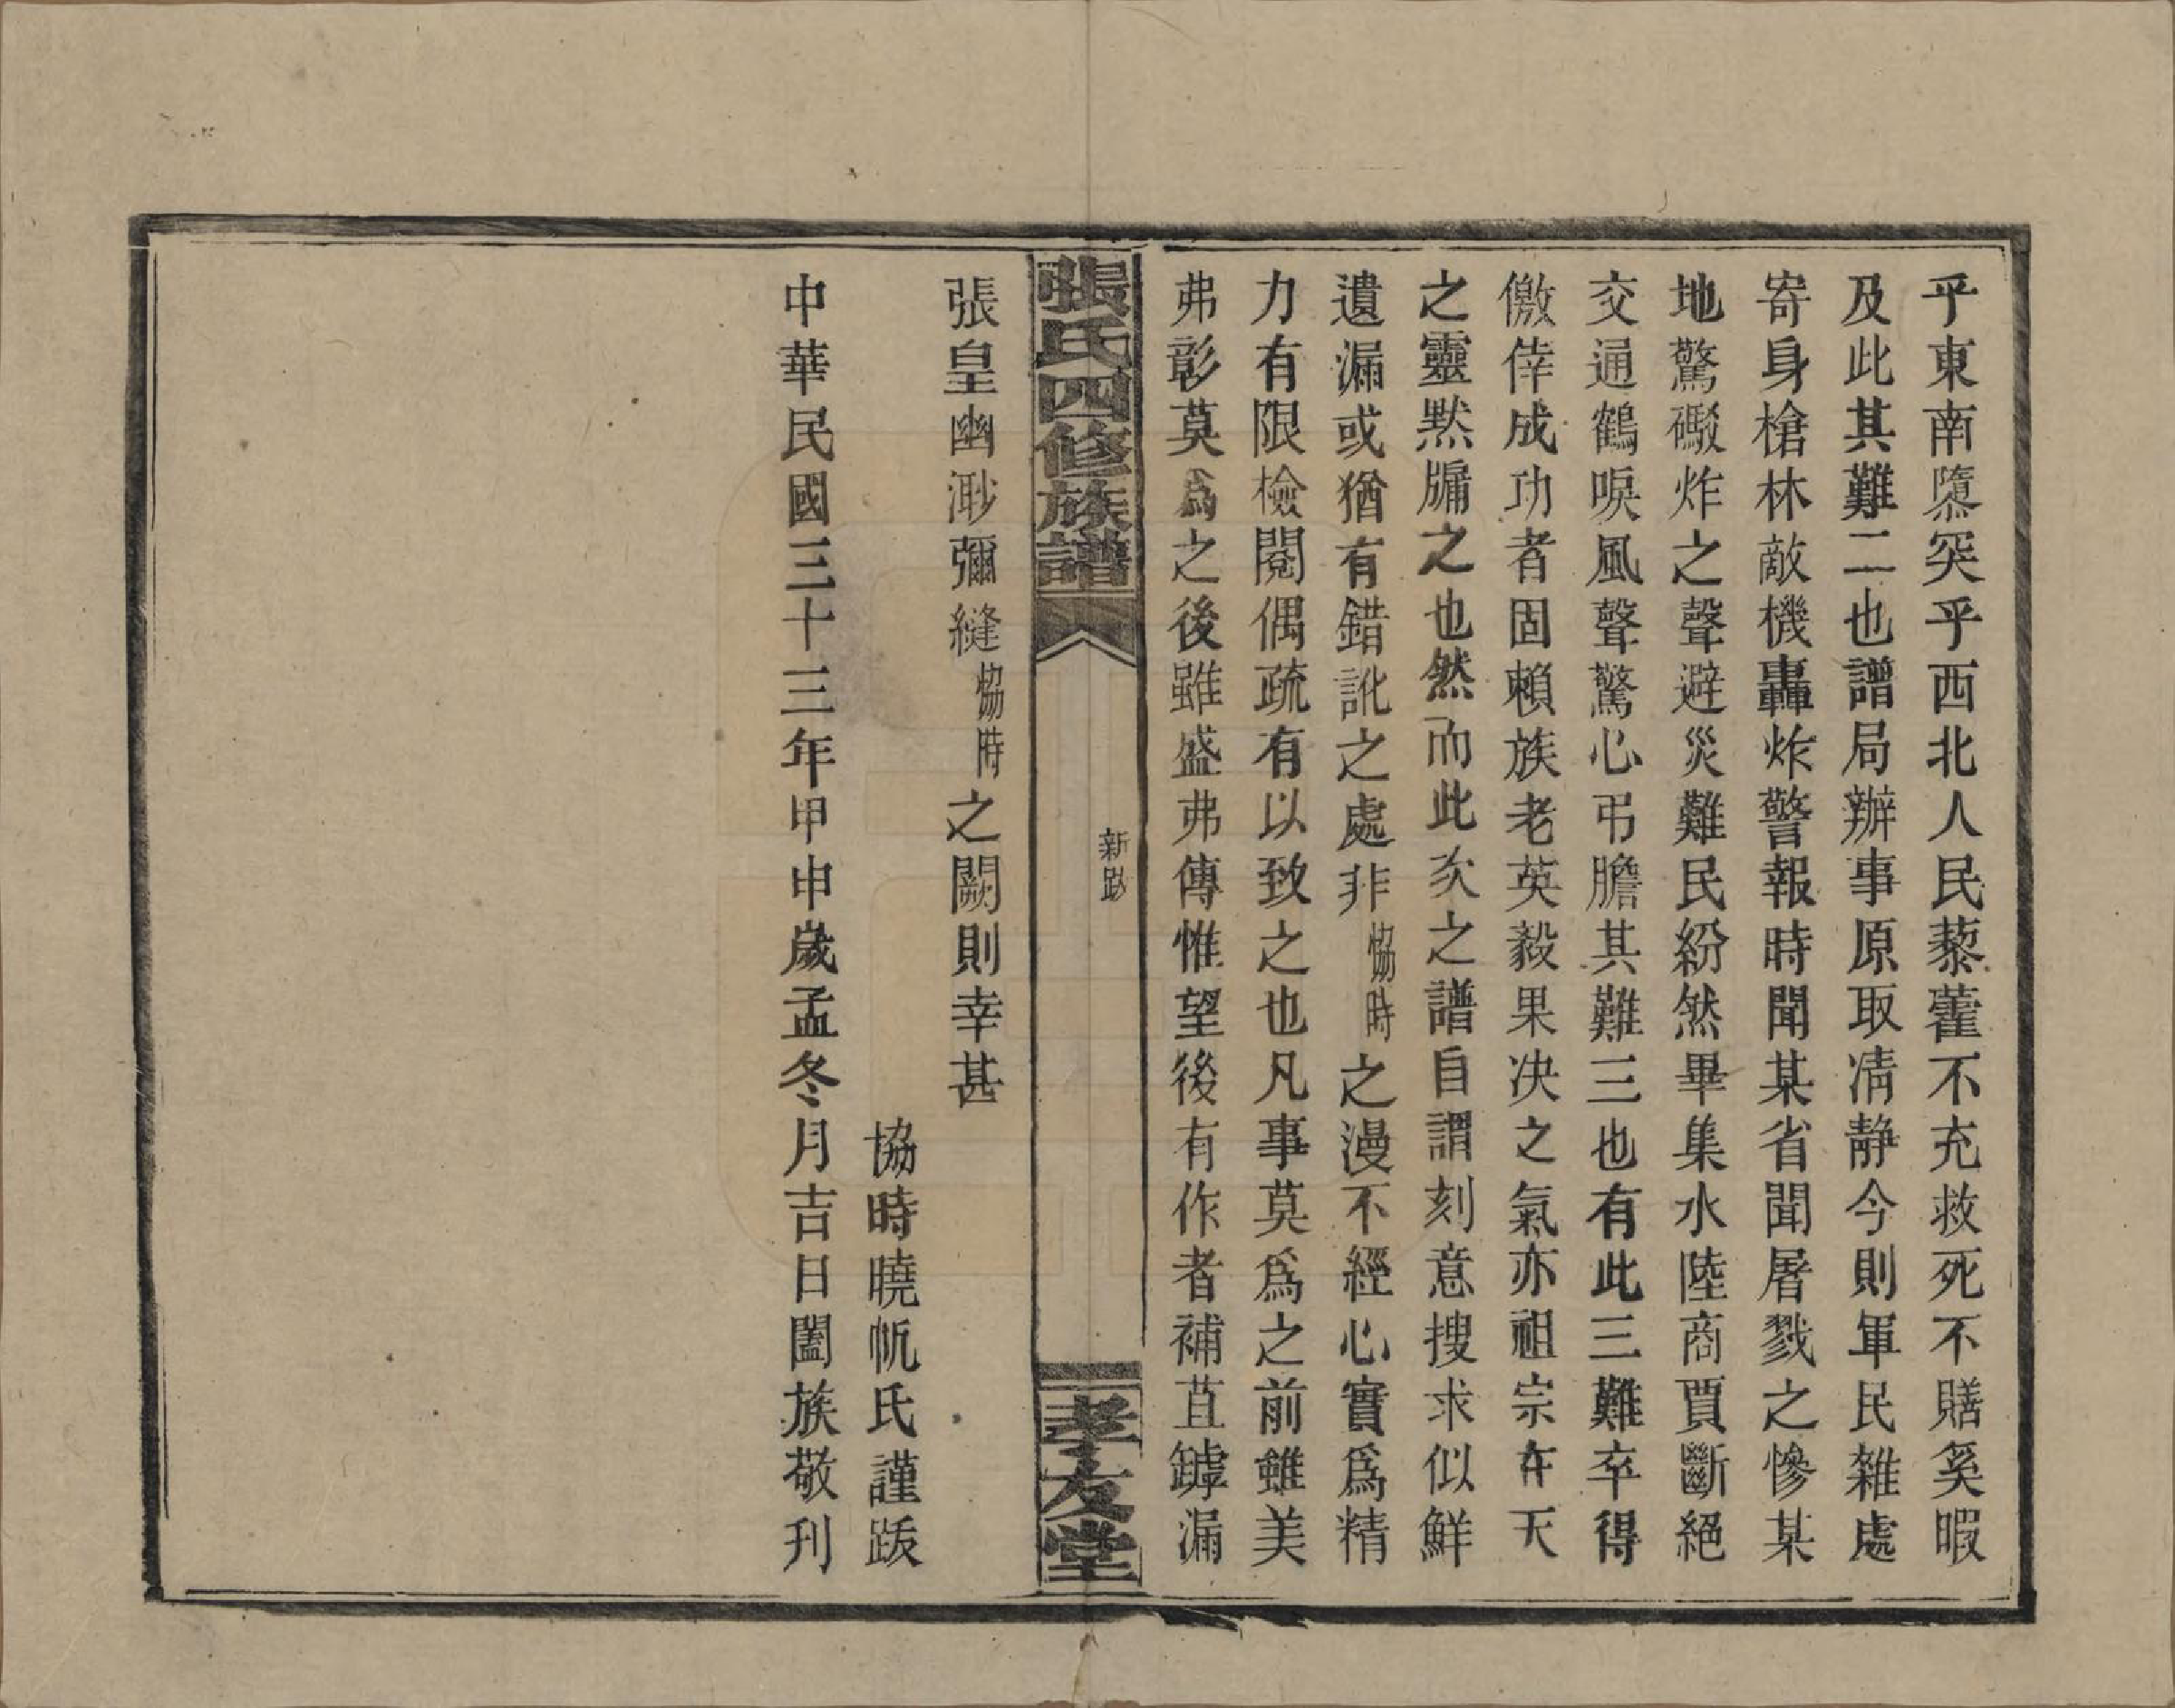 乎東南隳突乎西北人民藜藿不充救死不贍奚暇
及此其難二也譜局辦事原取清静今則軍民雜處
寄身槍林敵機轟炸警報時聞某省聞屠戮之慘某
地驚礮炸之聲避災難民紛然畢集水陸商賈斷絕
交通鶴唳風聲驚心弔膽其難三也有此三難卒得
儌倖成功者固賴族老英毅果決之氣亦祖宗在天
之靈默牖之也然而此次之譜自謂刻意搜求似鮮
遺漏或猶有錯訛之處非恊時之漫不經心實爲精
力有限檢閱偶疏有以致之也凡事莫爲之前雖美
弗彰莫爲之後雖盛弗傳惟望後有作者補苴罅漏
張氏四修族譜
新跋
孝友堂
張皇幽渺彌縫恊時之闕則幸甚
協時曉帆氏謹跋
中華民國三十三年甲申歲孟冬月吉日闔族敬刊